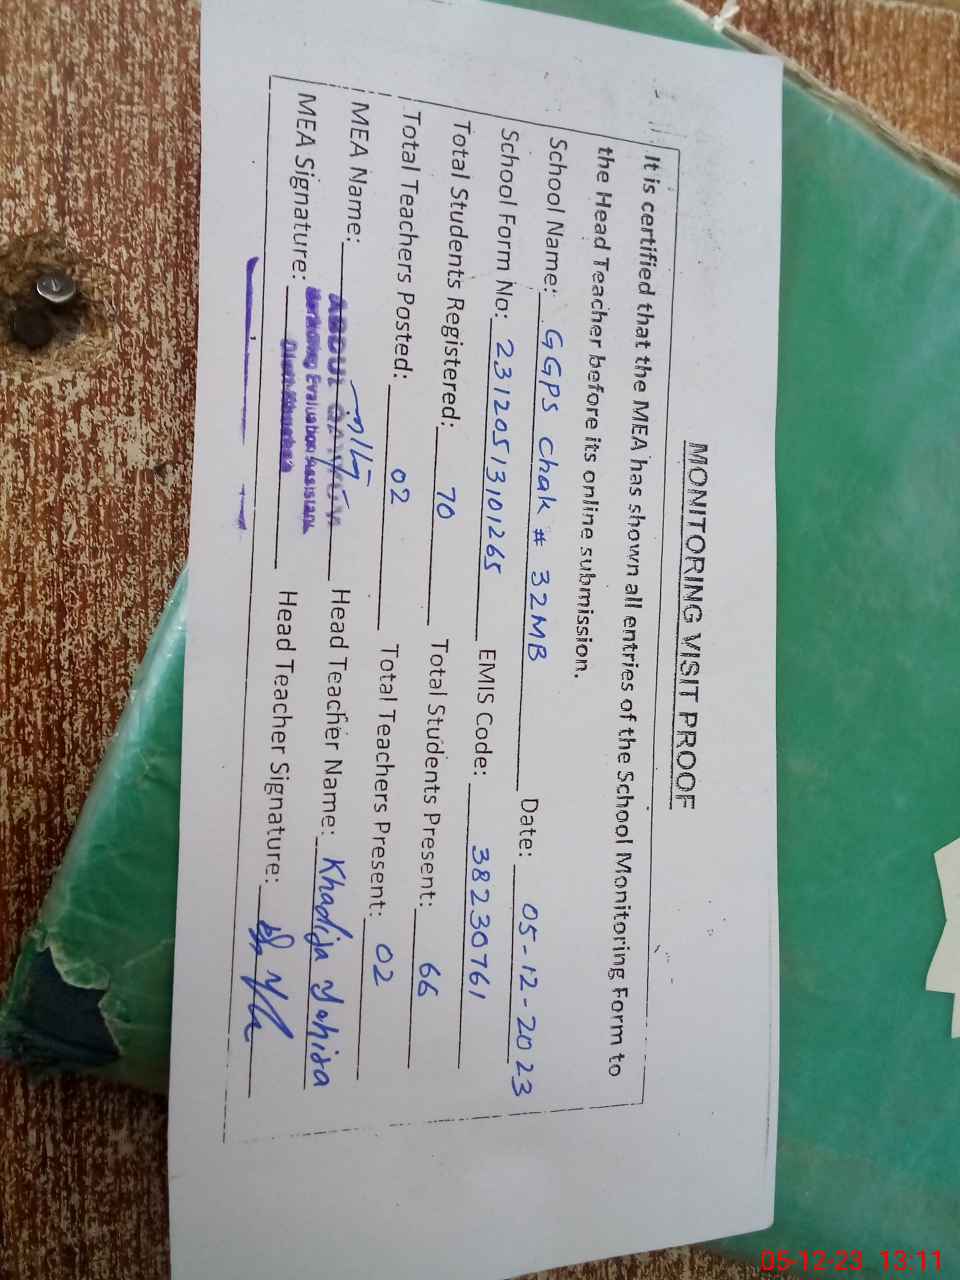 MONITORING VISIT PROOF
It is certified that the MEA has shown all entries of the School Monitoring Form to
the Head Teacher before its online submission.
School Name: GGPS Chak # 32MB Date: 05-12-2023
School Form No: 23120513101265 EMIS Code: 38230761
Total Students Registered: 70 Total Students Present: 66
Total Teachers Posted: 02 Total Teachers Present: 02
MEA Name: ABDUL Head Teacher Name: Khadija
MEA Signature: Evaluation Assistant Head Teacher Signature:
05-12-23 13:11